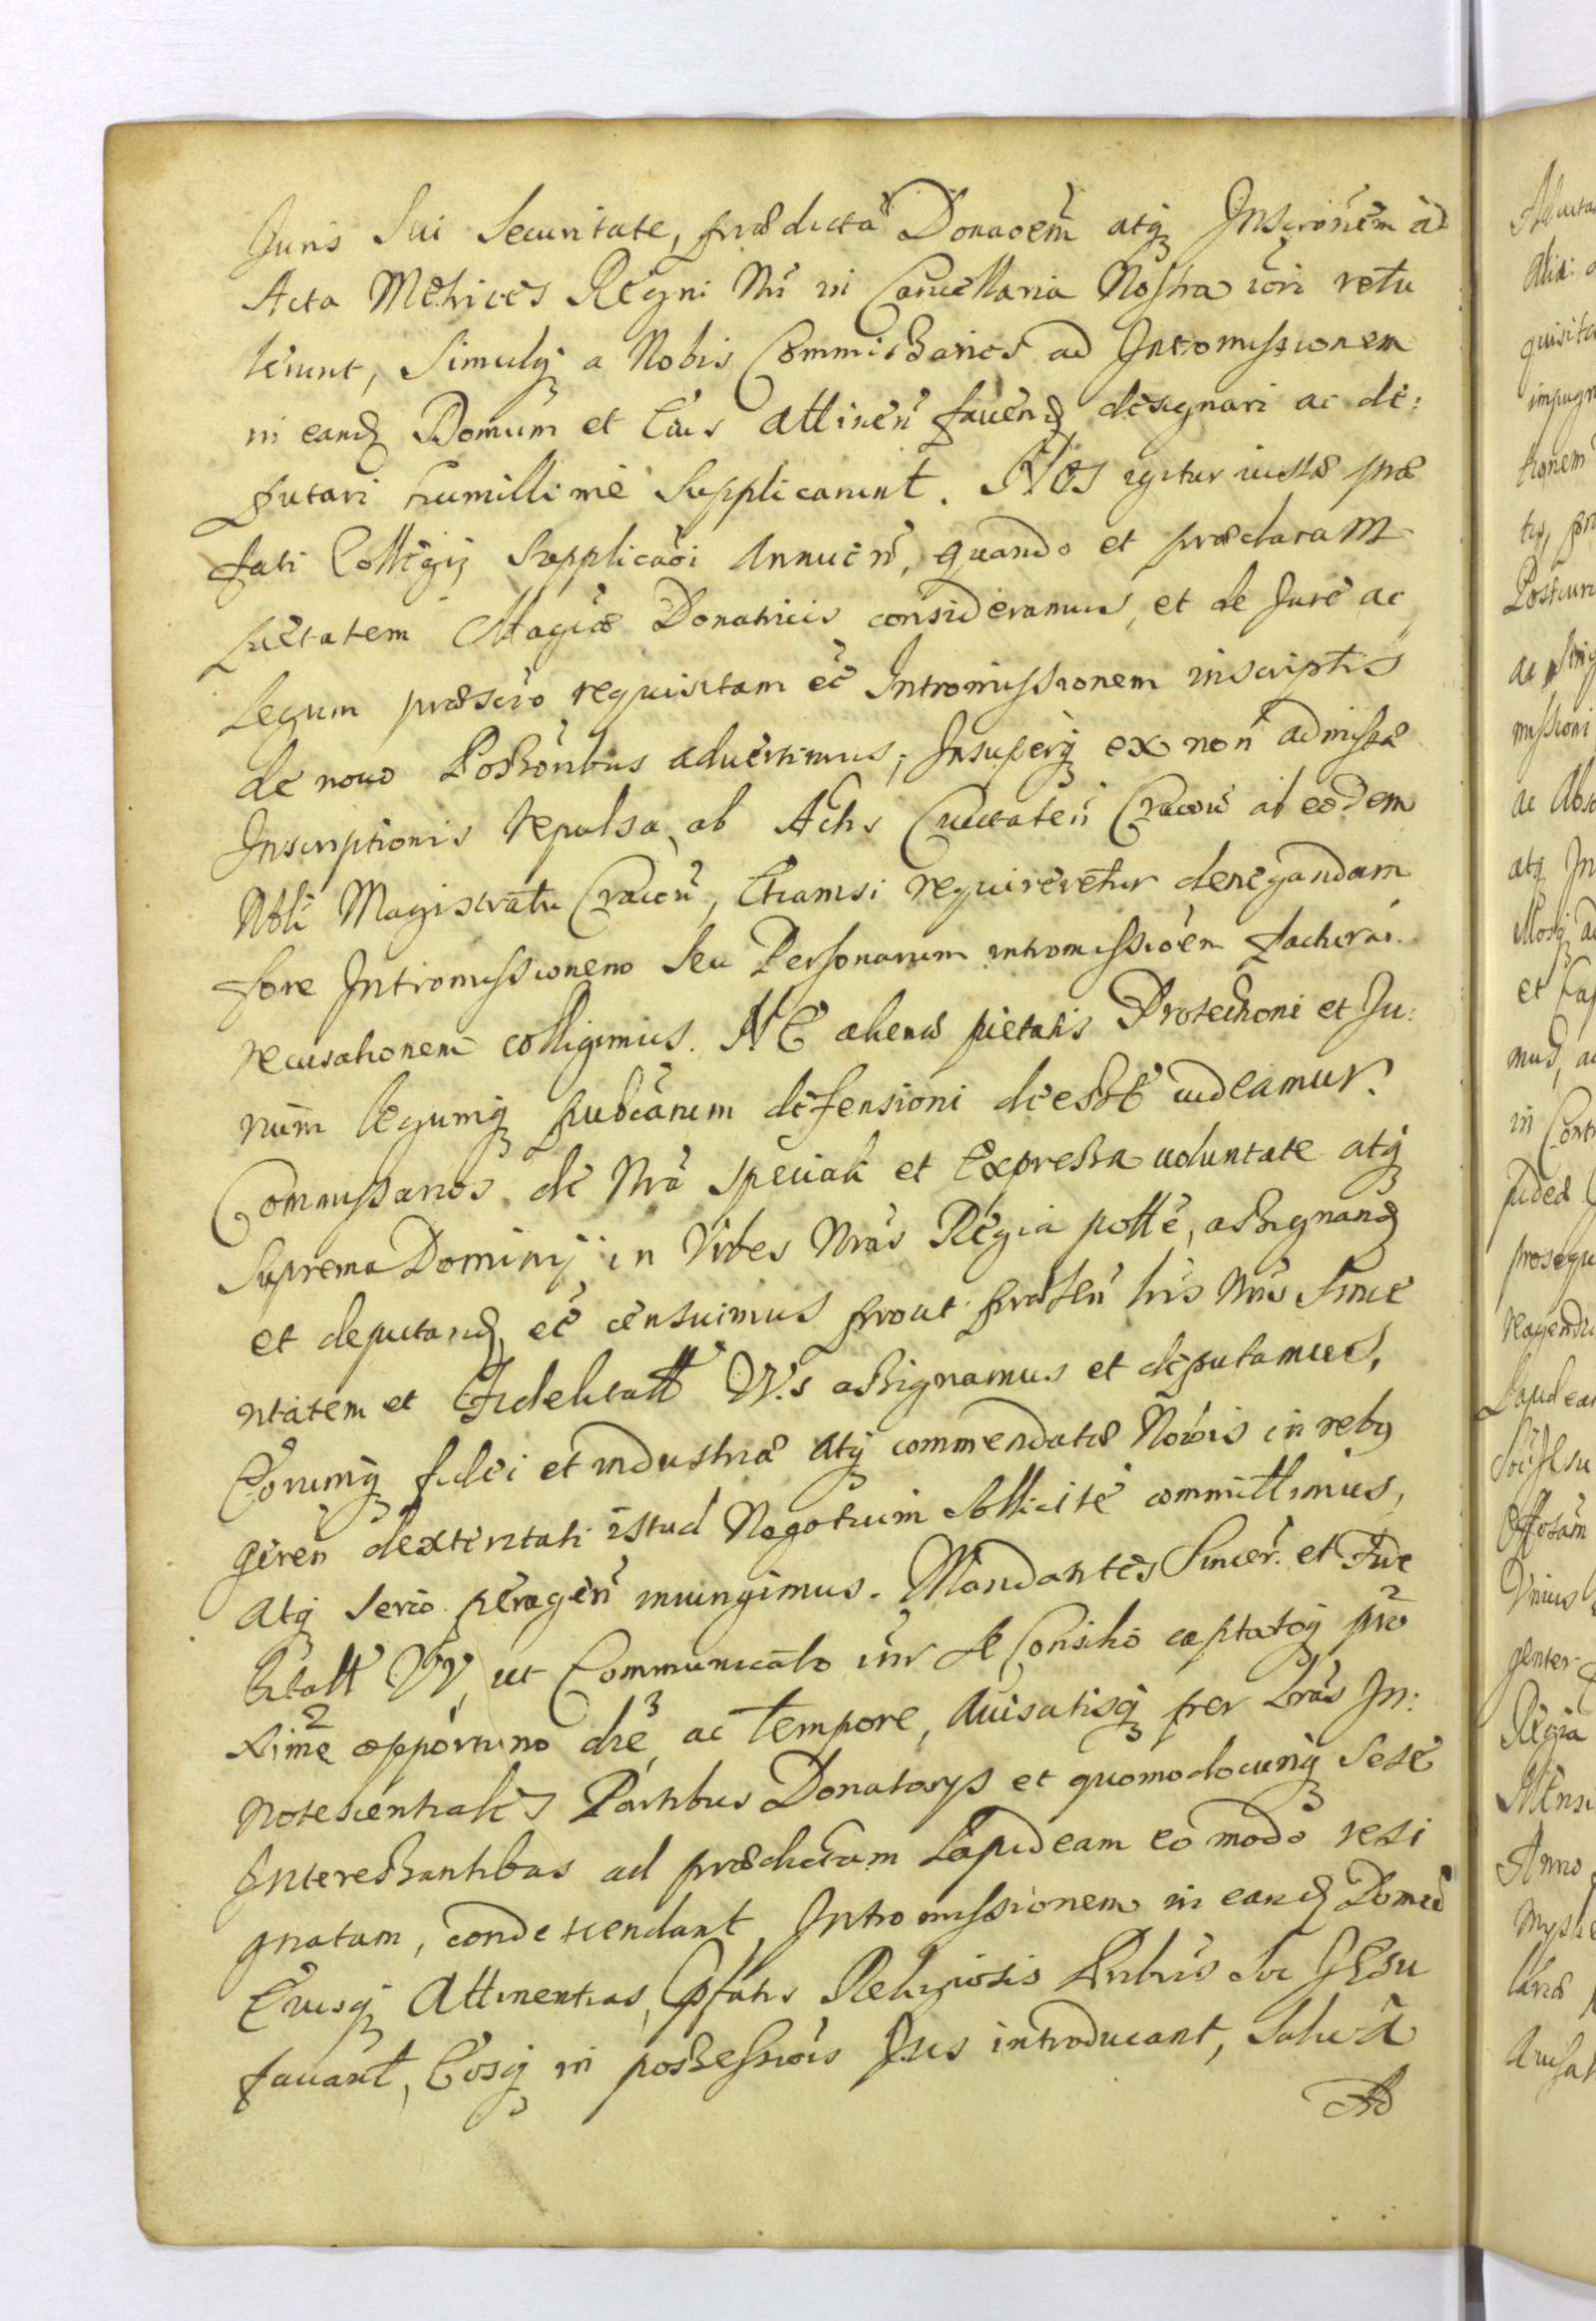 Juris sui Securitate, prædictã Donaoem̃ atq; Inscrionem ad
Acta Metrices Regni Nri in Cancellaria Nostra iori retu
lerunt, Simulq; a Nobis Commissarios ad Intromissionem
in eand; Domum et Eius attinen̄ faciend; designari ac de:
putari humillime Supplicarunt. Nos igitur iustæ præ
fati Collegij Supplicaoi Annuen̄, quando et præclaram
pietatem Magcæ Donatricis consideramus, et de Jure ac
Legum præscro requisitam eē Intromissionem inscriptis
de nouo Possoribus aduertimus; Insuperq; ex non admissa
Inscriptionis repulsa, ab Actis Ciuitaten̄ Cracou ab eodem
Nobli Magistratu Cracou, Etiamsi requireretur denegandam
fore Intromissionem seu Personarum intromissioem facturar.
recusationem colligimus. NE alienæ pietatis Protectioni et Ju:
rium legumq; publcarum defensioni deesse uideamur.
Commissarios de Nrã speciali et Expressa uoluntate atq;
Suprema Dominij in Vrbes Nrãs Regia potte, assignand;
et deputand; eē censuimus prout præsen̄ lris Nris Since
ritatem et Fidelitatt VV.s assignamus et deputamus,
Eorumq; fidei et industriæ atq; commendatæ Nobis in reb9
geren̄ dexteritati istud Negotium sollicite committimus,
atq; serio peragen̄ iniungimus. Mandantes Sincer. et Fide
litatt VV, ut Communicato inr se Consilio captatoq; pro
xime opportuno die, ac tempore, auisatisq; per Lrãs In:
notescentiales Partibus Donatorys et quomodocunq; sese
Interessantibus ad prædictam Lapideam eo modo resi
gnatam, condescendant, Intromissionem in eand; Domũ
Eiusq; Attinentias, Præfatis Religiosis Prbus Soc JEsu
faciant, Eosq; in possessiois Jus introducant, salua
Ad